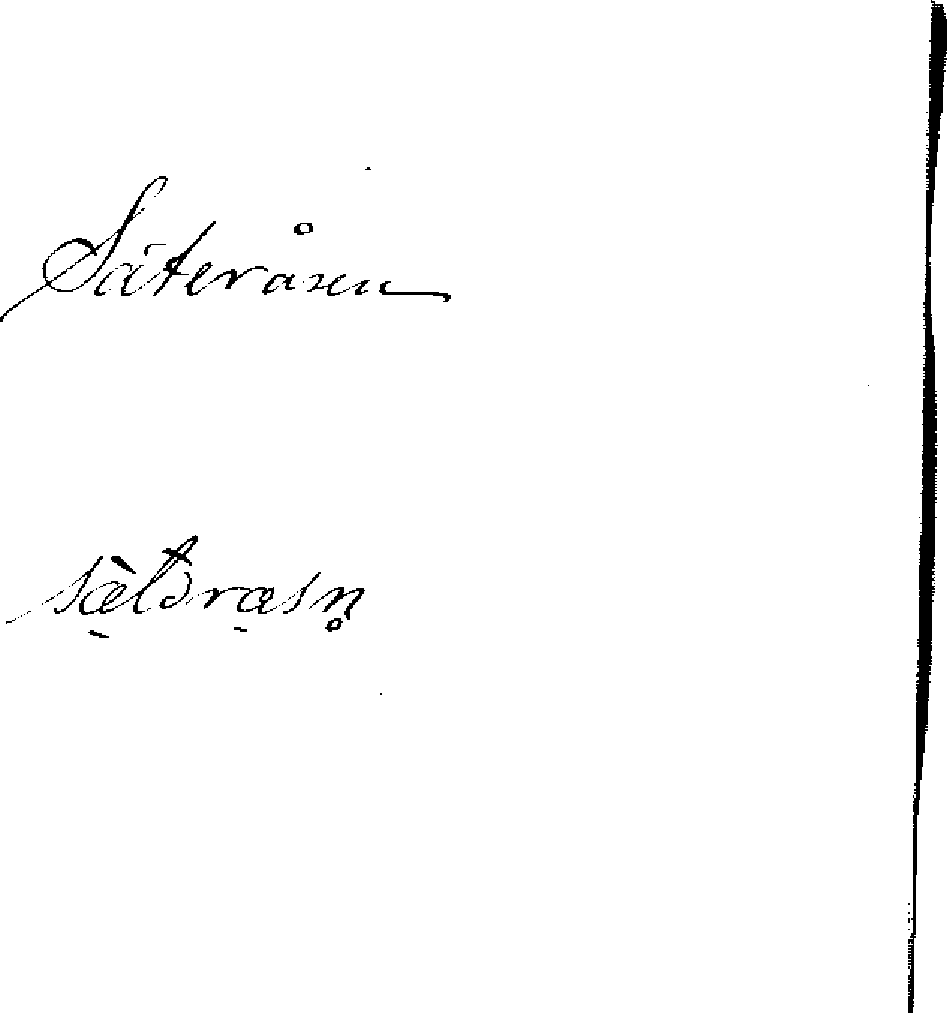 Säteråsen
sæ̱̀təræ̱sn̥